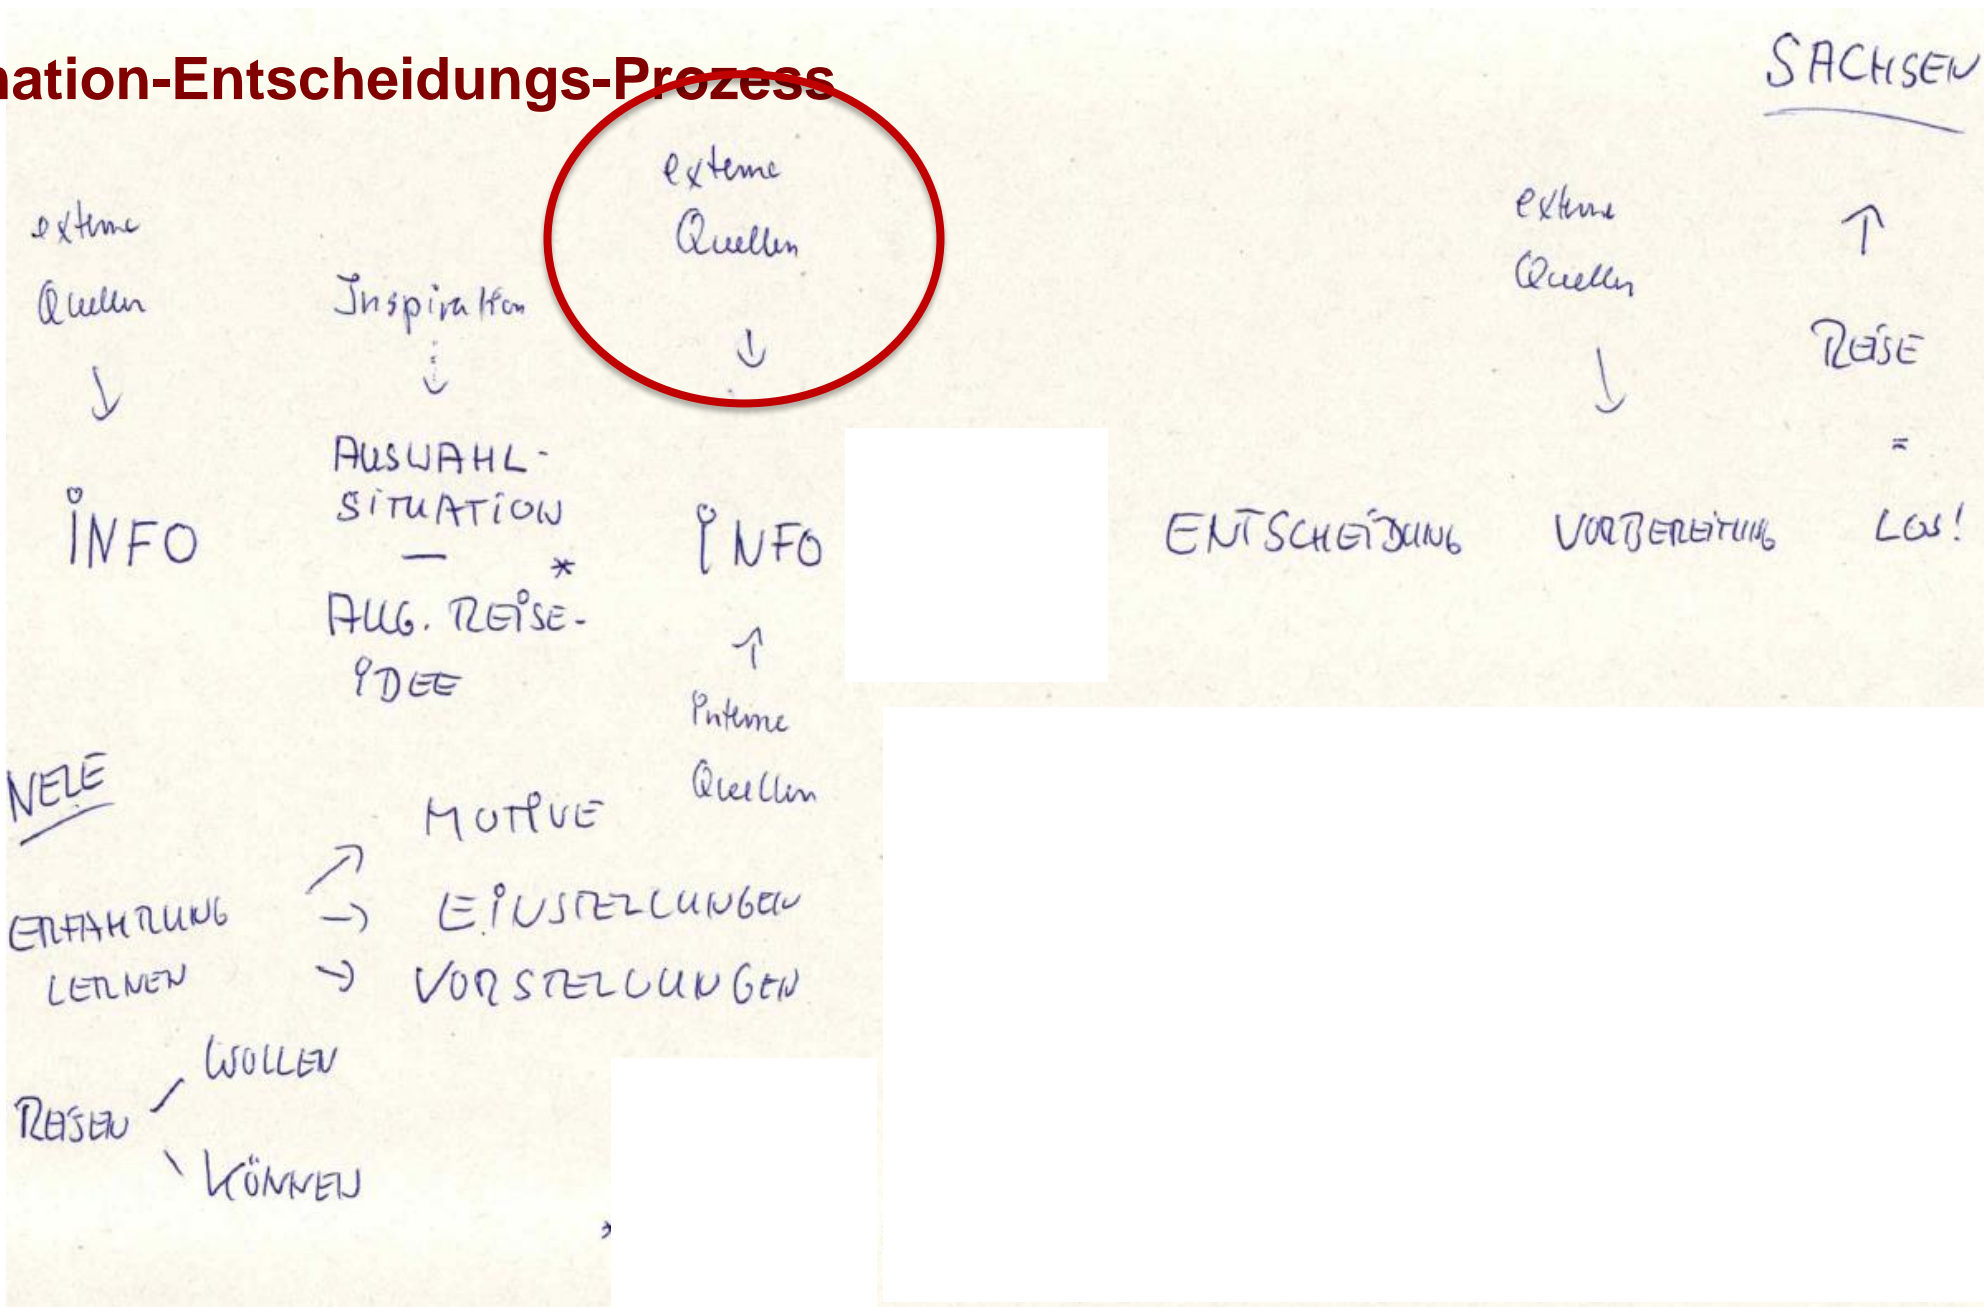 nation-Entscheidungs-Prozess
SACHSEN
externe
Quellen
Inspiration
externe
Quellen
externe
Quellen
REISE
=
INFO
AUSWAHL-
SITUATION
—
*
ALLG. REISE-
IDEE
INFO
interne
Quellen
ENTSCHEIDUNG
VORBEREITUNG
LOS!
NELE
ERFAHRUNG
LERNEN
MOTIVE
EINSTELLUNGEN
VORSTELLUNGEN
REISEN
WOLLEN
KÖNNEN
*